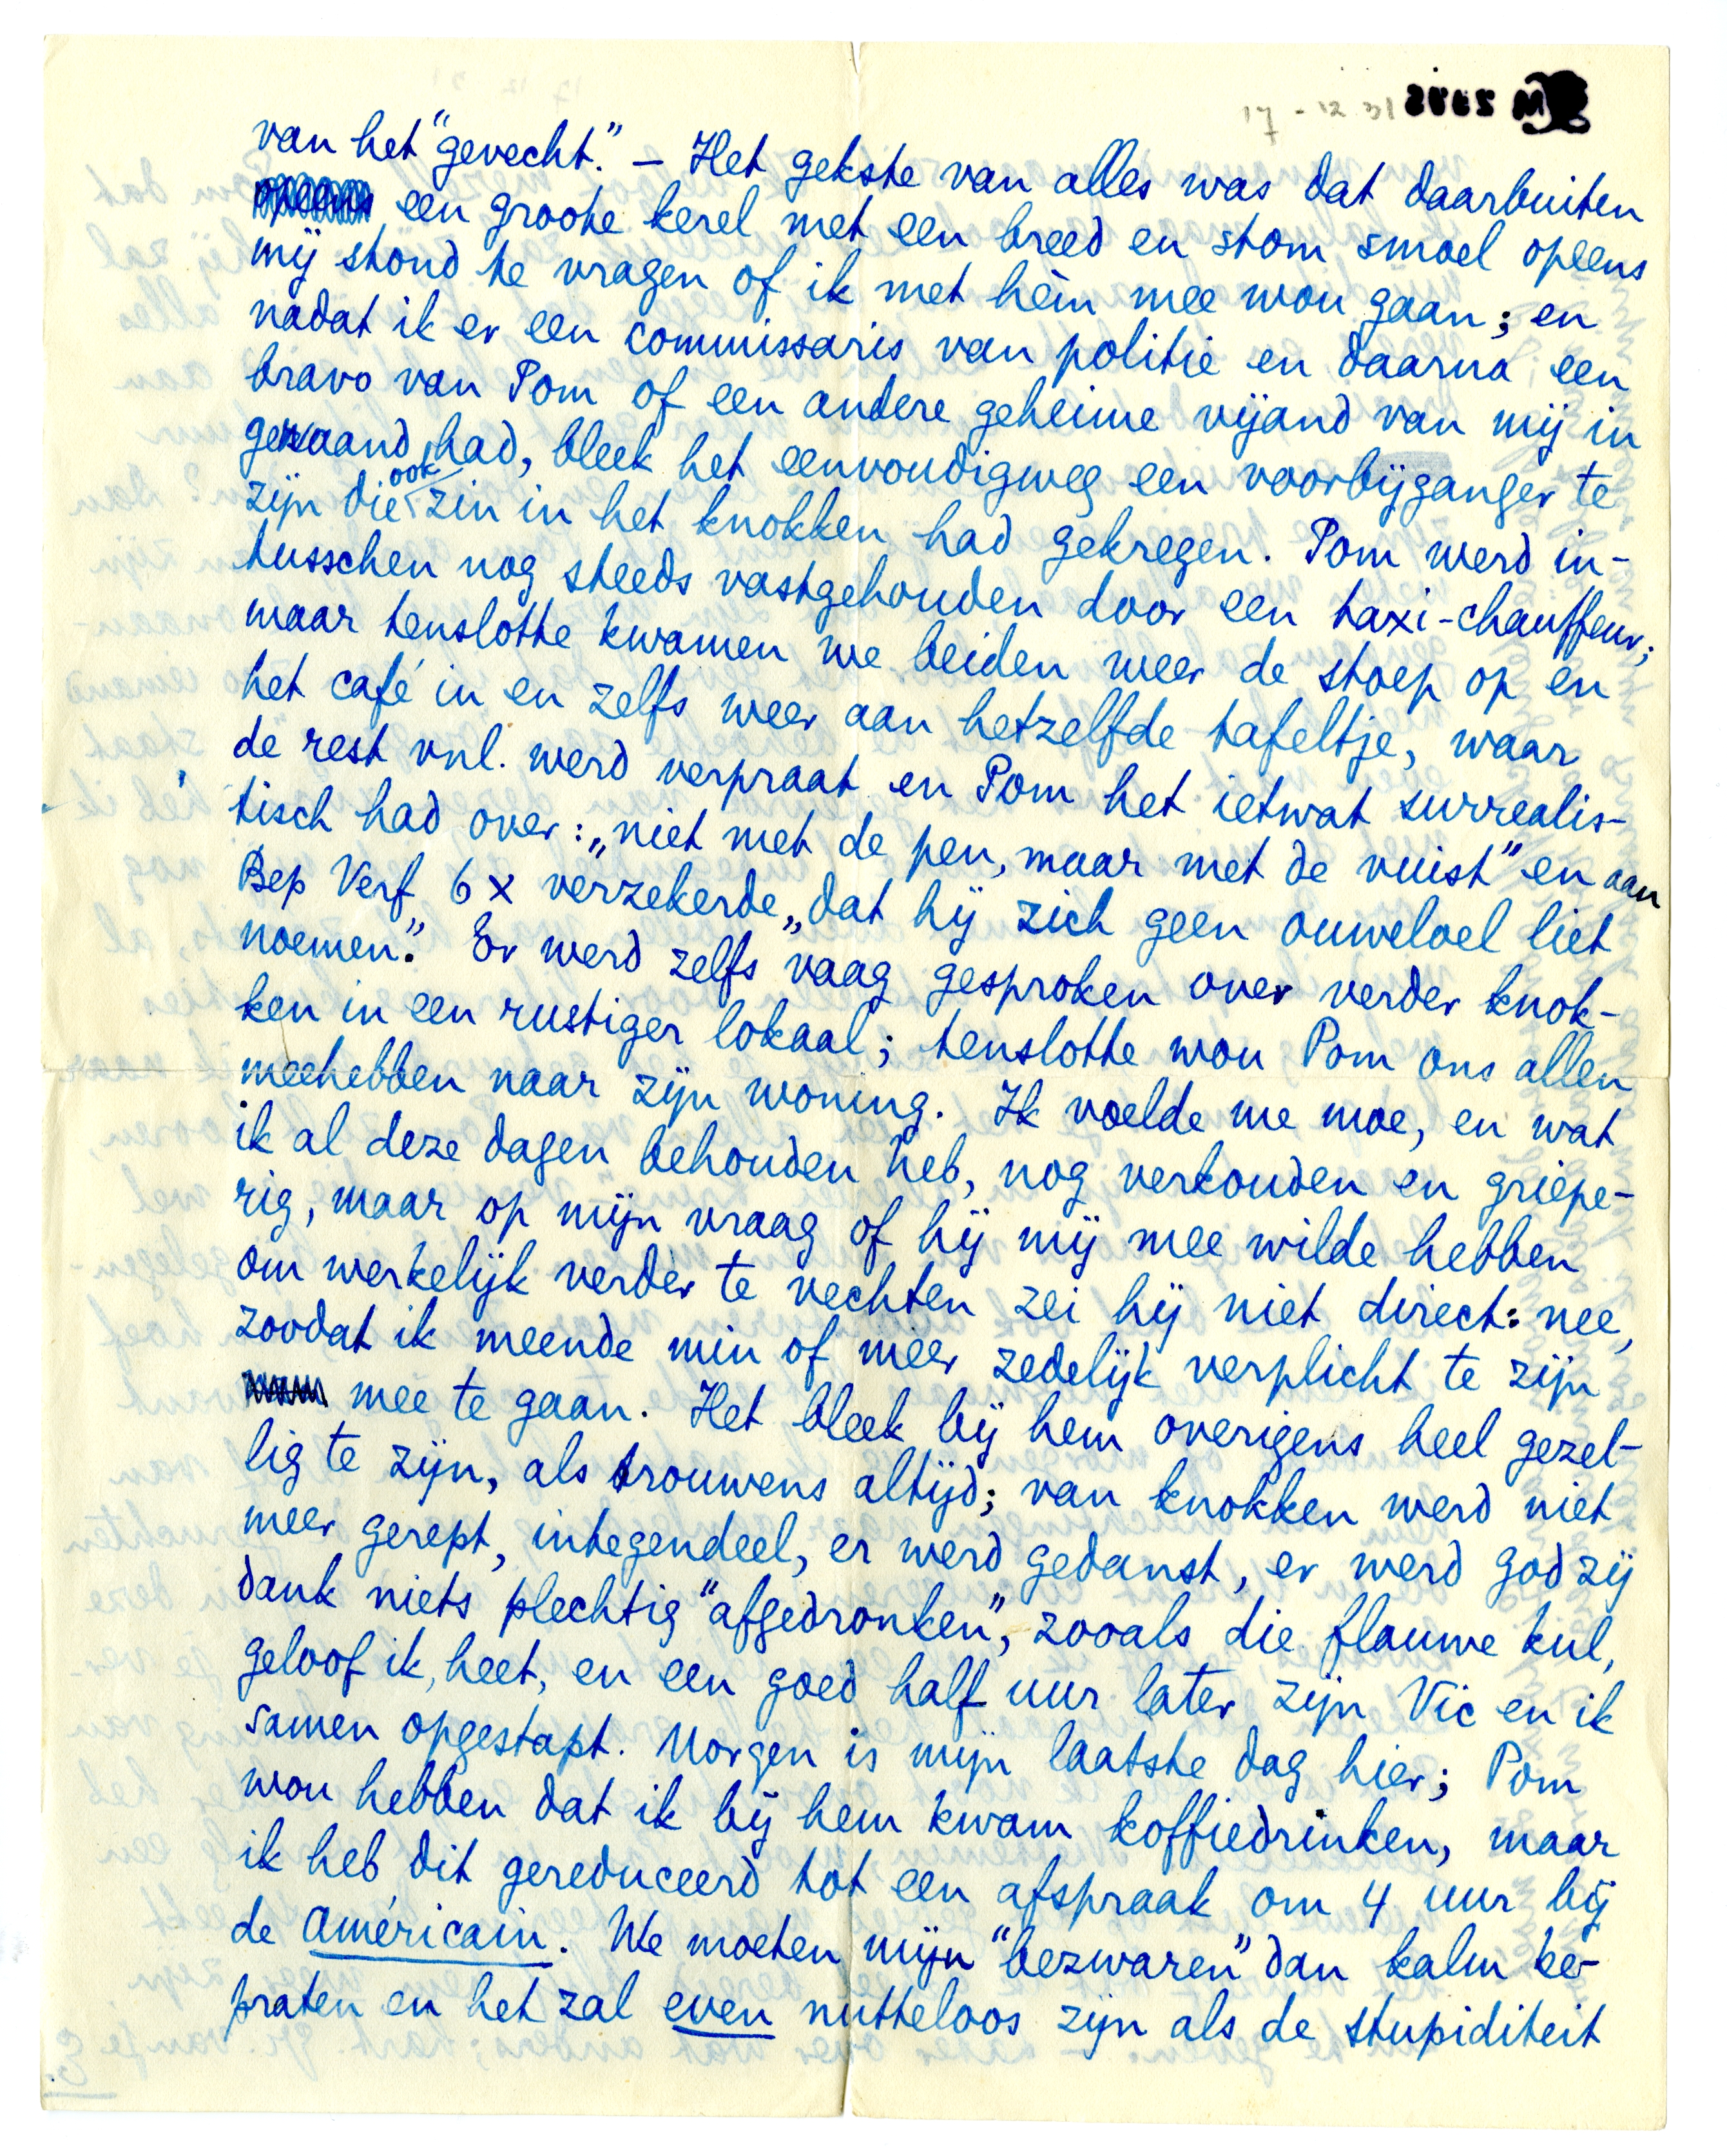 17-12 31
van het "gevecht." – Het gekste van alles was dat daarbuiten
een groote kerel met een breed en stom smoel opeens
mij stond te vragen of ik met hèm mee wou gaan; en
nadat ik er een commissaris van politie en daarna een
bravo van Pom of een andere geheime vijand van mij in
gewaand had, bleek het eenvoudigweg een voorbijganger te
zijn die ook zin in het knokken had gekregen. Pom werd in-
tusschen nog steeds vastgehouden door een taxi-chauffeur;
maar tenslotte kwamen we beiden weer de stoep op en
het café in en zelfs weer aan hetzelfde tafeltje, waar
de rest vnl. werd verpraat en Pom het ietwat surrealis-
tisch had over: „niet met de pen, maar met de vuist" en aan
Bep Verf 6 x verzekerde „dat hij zich geen ouweloel liet
noemen." Er werd zelfs vaag gesproken over verder knok-
ken in een rustiger lokaal; tenslotte wou Pom ons allen
meehebben naar zijn woning. Ik voelde me moe, en wat
ik al deze dagen behouden heb, nog verkouden en griepe-
rig, maar op mijn vraag of hij mij mee wilde hebben
om werkelijk verder te vechten zei hij niet direct: nee,
zoodat ik meende min of meer zedelijk verplicht te zijn
mee te gaan. Het bleek bij hem overigens heel gezel-
lig te zijn, als trouwens altijd; van knokken werd niet
meer gerept, integendeel, er werd gedanst, er werd god zij
dank niets plechtig "afgedronken", zooals die flauwe kul,
geloof ik, heet, en een goed half uur later zijn Vic en ik
samen opgestapt. Morgen is mijn laatste dag hier; Pom
wou hebben dat ik bij hem kwam koffiedrinken, maar
ik heb dit gereduceerd tot een afspraak om 4 uur bij
de Américain. We moeten mijn "bezwaren" dan kalm be-
praten en het zal even nutteloos zijn als de stupiditeit